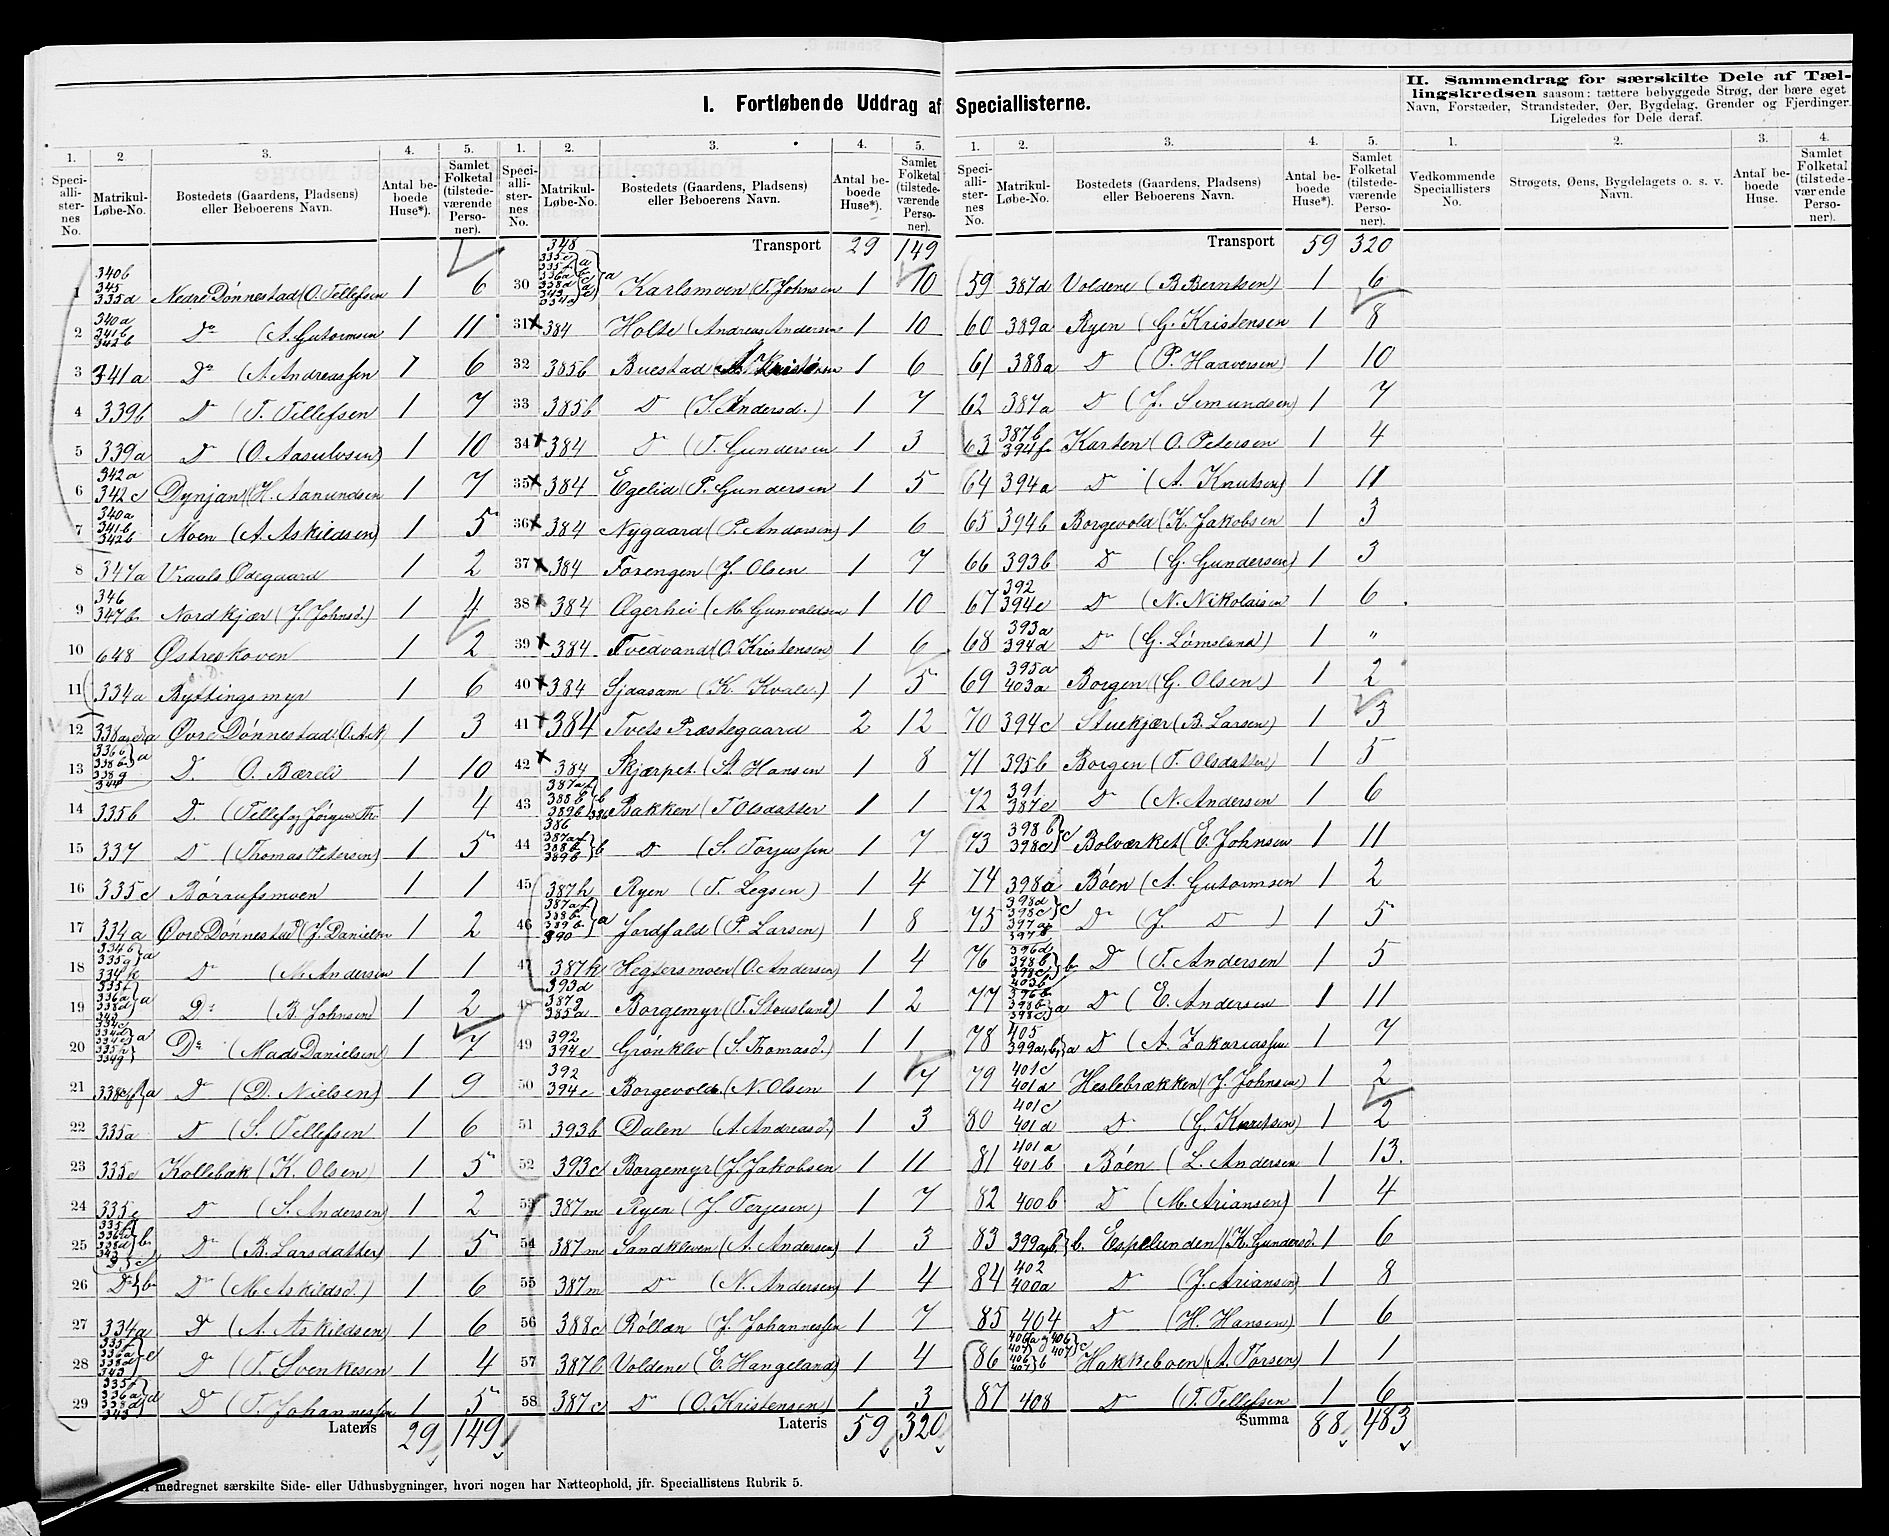 I. Fortløbende Uddrag af Speciallisterne.
II. Sammendrag for særskilte Dele af Tæl-
lingskredsen saasom: tættere bebyggede Strøg, der bære eget
Navn, Forstæder, Strandsteder, Øer, Bygdelag, Grender og Fjerdinger.
Ligeledes for Dele deraf.
1. 2 3. 4. 5.
Speci-alli-ster-nes No. Matrikul-Løbe-No. Bostedets (Gaardens, Pladsens) eller Beboerens Navn. Antal be-boede Huse*). Samlet Folketal (tilstede-værende Perso-ner).
1 340b 345 335d Nedre Dønnestad (O. Tellefsen 1 6
2 340a 341b 342b Do (A. Gutormsen 1 11
3 341a Do (A. Andreassen 1 6
4 339b D (T. Tellefsen 1 7
5 339a D (O. Aasulvsen) 1 10
6 342a 342c Dynjan (K. Aanundsen 1 7
7 340a 341b 342b Moen (A. Askildsen) 1 5
8 347a Vraals Ødegaard 1 2
9 346 347b Nordkjær (J. Johnsd.) 1 4
10 648 Østreskoven 1 2
11 334a Byttingsmyr 1 6
12 Øvre Dønnestad (O. Ask 1 3
13 D. O. Bærdi 1 10
14 335b D. (Tellef og Jørgen Th. 1 4
15 337 D (Thomas Petersen) 1 5
16 335c Børrufsmoen 1 1
17 334a Øvre Dønnestad (J. Danielsen 1 2
18 D (M. Andersen 1 1
19 D (B. Johnsen) 1 2
20 D (Mads Danielsen) 1 7
21 D (D. Nielsen) 1 9
22 335a D (S. Tellefsen 1 6
23 335c Kollebak (K. Olsen) 1 5
24 335c D (S. Andersen) 1 2
25 D (B. Larsdatter) 1 5
26 D (M. Askildsd.) 1 6
27 334a D (A. Askildsen) 1 6
28 D (T. Svenkesen 1 4
29 D (T. Johannessen 1 5
Lateris 29 149
1. 2. 3. 4. 5.
Speci-alli-ster-nes No. Matrikul-Løbe-No. Bostedets (Gaardens, Pladsens) eller Beboerens Navn. Antal be-boede Huse*). Samlet Folketal (tilstede-værende Perso-ner).
Transport 29 149
30 Karlsmoen (T. Johnsen 1 10
31 x 384 Holte (Andreas Andersen 1 10
32 385b Buestad 1 6
33 385b D (S. Andersd.) 1 7
34 x 384 D (T. Gundersen 1 3
35 x 384 Egelid (P. Gundersen 1 5
36 x 384 Nygaard (P. Andersen) 1 6
37 x 384 Forengen (J. Olsen 1 7
38 x 384 Ægerhei (M. Gunvaldsen 1 10
39 x 384 Tvedvand (O. Kristensen) 1 6
40 x 384 Sjaasam (K. Kvale.) 1 5
41 x 384 Tvets Præstegaard 2 12
42 x 384 Skjærpet (A. Hansen 1 8
43 Bakken (T Olsdatter 1 1
44 D (S. Torjussen 1 7
45 387h Ryen (T. Legsen) 1 4
46 Jordfald (P. Larsen) 1 8
47 387k Hegtersmoen (O. Andersen) 1 4
48 393d 387g 385a Borgemyr (T. Stousland) 1 2
49 392 394e Grønklev (S. Thomasd.) 1 1
50 392 394e Borgevold (N. Olsen 1 7
51 393b Dalen (A. Andreasd.) 1 3
52 393c Borgemyr (J. Jakobsen 1 11
53 387m Ryen (J. Terjesen) 1 7
54 387m Sandkleven (A. Andersen) 1 3
55 387m D (N. Andersen) 1 4
56 388c Røllan (J. Johannessen 1 7
57 387l Voldene (E. Hangeland) 1 4
58 387c D (O. Kristensen) 1 3
Lateris 59 320
1. 2. 3. 4. 5.
Speci-alli-ster-nes No. Matrikul-Løbe-No. Bostedets (Gaardens, Pladsens) eller Beboerens Navn. Antal be-boede Huse*). Samlet Folketal (tilstede-værende Perso-ner).
Transport 59 320
59 387d Voldene (B. Berntsen) 1 6
60 389a Ryen (G. Kristensen 1 8
61 388a D (P. Haaversen) 1 10
62 387a D (J. Semundsen) 1 7
63 387b 394f Karten (O. Petersen 1 4
64 394a D (A. Knutsen) 1 11
65 394b Borgevold (K. Jakobsen 1 3
66 393b D (G. Gundersen) 1 3
67 392 394e D (N. Nikolaisen 1 6
68 393a 394d D (G. Lømsland) 1 "
69 395a 403a Borgen (G. Olsen) 1 2
70 394c Stuekjær (B. Larsen) 1 3
71 395b Borgen (T. Olsdatter) 1 5
72 391 387e D (N. Andersen 1 6
73 398b 398c c Bolværket (E. Johnsen 1 11
74 398a Bøen (A. Gutormsen 1 2
75 D (J. D ) 1 5
76 D (T. Andersen 1 5
77 D (E. Andersen 1 11
78 405 399a,b a D (A. Zakariassen 1 7
79 401c 401d Heslebrækken (J. Johnsen) 1 2
80 401c 401d D (G. Knutsen) 1 2
81 401a 401b Bøen (L. Andersen 1 13.
82 400b D (M. Ariansen) 1 4
83 399a,b b. Espelunden (K. Gundersd. 1 6
84 402 400a D (J. Ariansen) 1 8
85 404 D (H. Hansen) 1 6
86 Hakkeboen (A. Torsen) 1 1
87 408 D (T. Tellefsen 1 6
Summa 88 483
1. 2. 3. 4.
Vedkommende Speciallisters No. Strøgets, Øens, Bygdelagets o. s. v. Navn. Antal beboede Huse. Samlet Folketal (tilstede-værende Perso-ner).
medregnet særskilte Side- eller Udhusbygninger, hvori nogen har Natteophold, jfr. Speciallistens Rubrik 5.